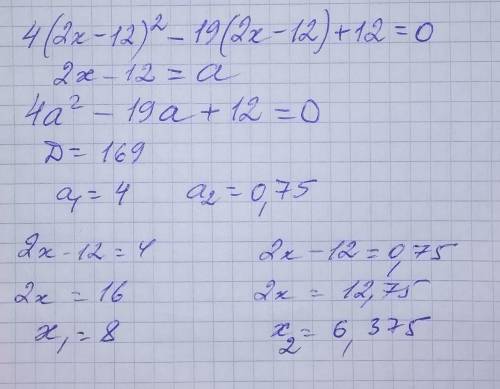 4(2x-12)² - 19(2x-12) + 12 = 0
2x - 12 = a
4a² - 19a + 12 = 0
D = 169
a₁ = 4 a₂ = 0,75
2x - 12 = 4 2x - 12 = 0,75
2x = 16 2x = 12,75
x₁ = 8 x₂ = 6,375